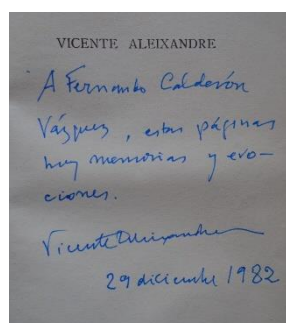 VICENTE ALEIXANDRE
A Fernando Calderón
Vázquez, estas páginas
hoy memorias y evo-
ciones.
Vicente Aleixandre
29 diciembre 1982